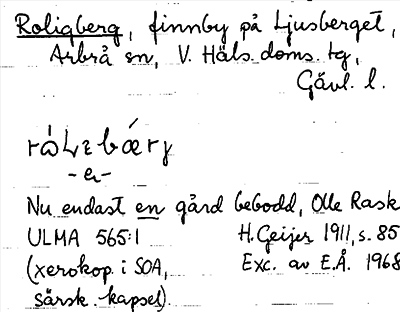 Roligberg, finnby på Ljusberget,
Arbrå sn, V. Häls. doms. tg,
Gävl. l.
Nu endast en gård bebodd, Olle Rask
ULMA 565:1 H. Geijer 1911, s. 85
(xerokop. i SOA, Exc. av E.Å. 1968
särsk. kapsel).